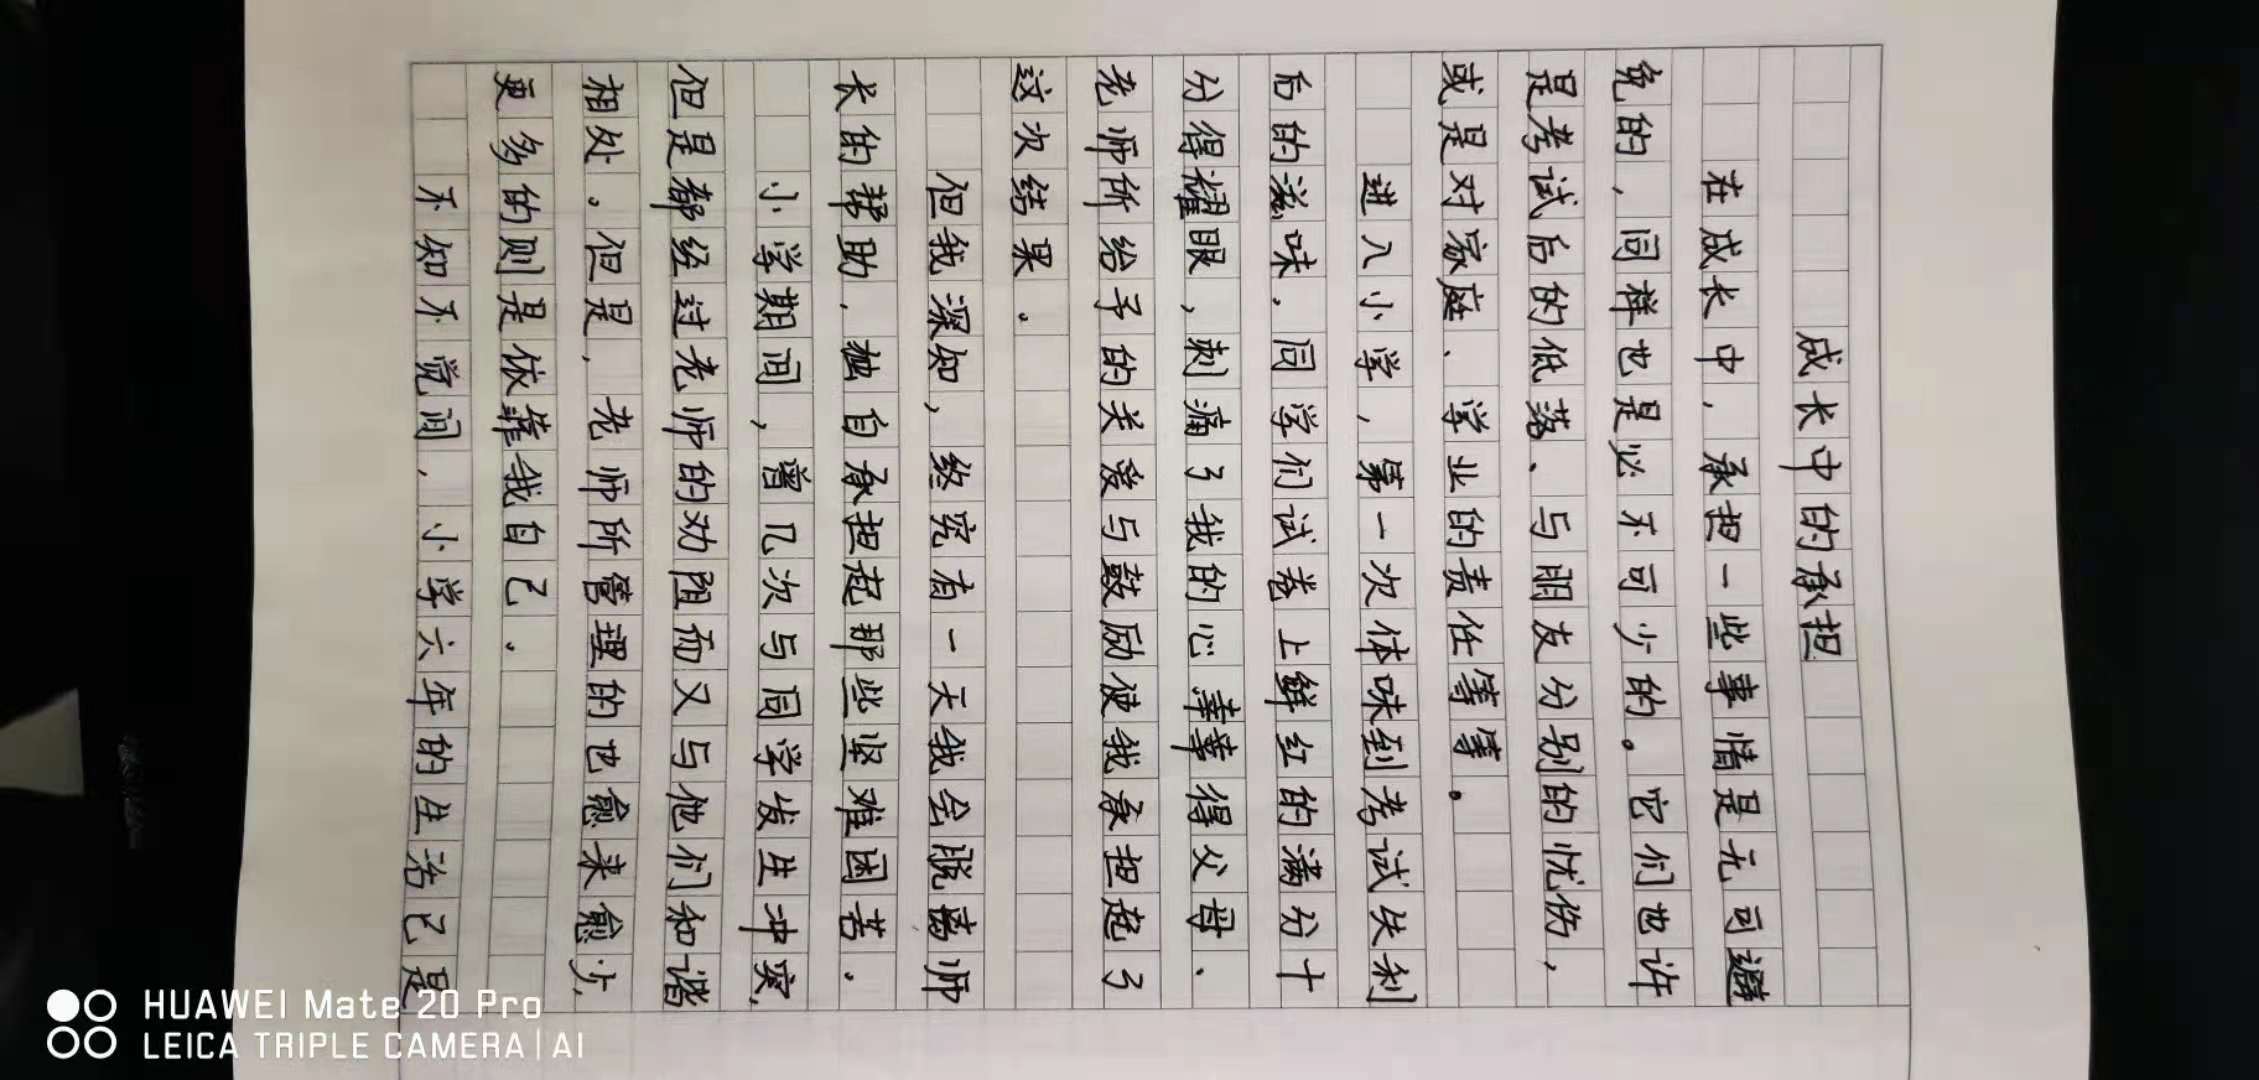 成长中的承担
在成长中，承担一些事情是无可避
免的，同样也是必不可少的。它们也许
是考试后的低落、与朋友分别的忧伤，
或是对家庭、学业的责任等等。
进入小学，第一次体味到考试失利
后的滋味，同学们试卷上鲜红的满分十
分得耀眼，刺痛了我的心，幸得父母、
老师所给予的关爱与鼓励使我承担起了
这次结果。
但我深知，终究有一天我会脱离师
长的帮助，独自承担起那些坚难困苦。
小学期间，曾几次与同学发生冲突，
但是都经过老师的劝阻而又与他们和谐
相处。但是，老师所管理的也愈来愈少，
更多的则是依靠我自己。
不知不觉间，小学六年的生活已是
HUAWEI Mate 20 Pro
LEICA TRIPLE CAMERA | AI